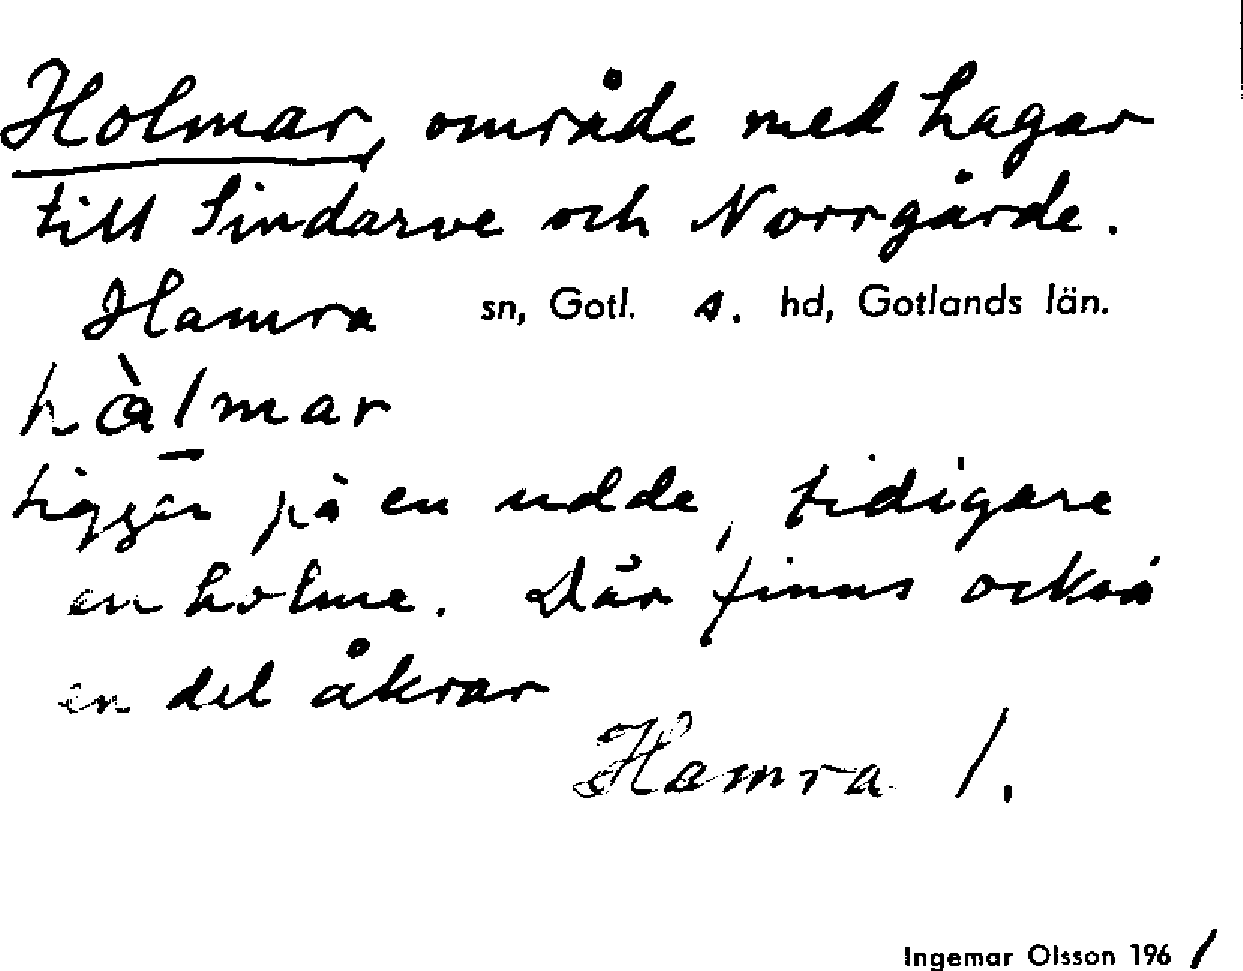 Holmar, område med hagar
till Sindarve och Norrgårde.
Hamra sn, Gotl. s. hd, Gotlands län.
hàlmar
ligger på en udde, tidigare
en holme. Där finns också
en del åkrar
Hamra 1.
Ingemar Olsson 1961